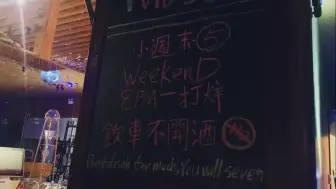 小週末⑤
WeekenD
8PM一打烊
飲車不開酒
Don't drink too much, You will seven